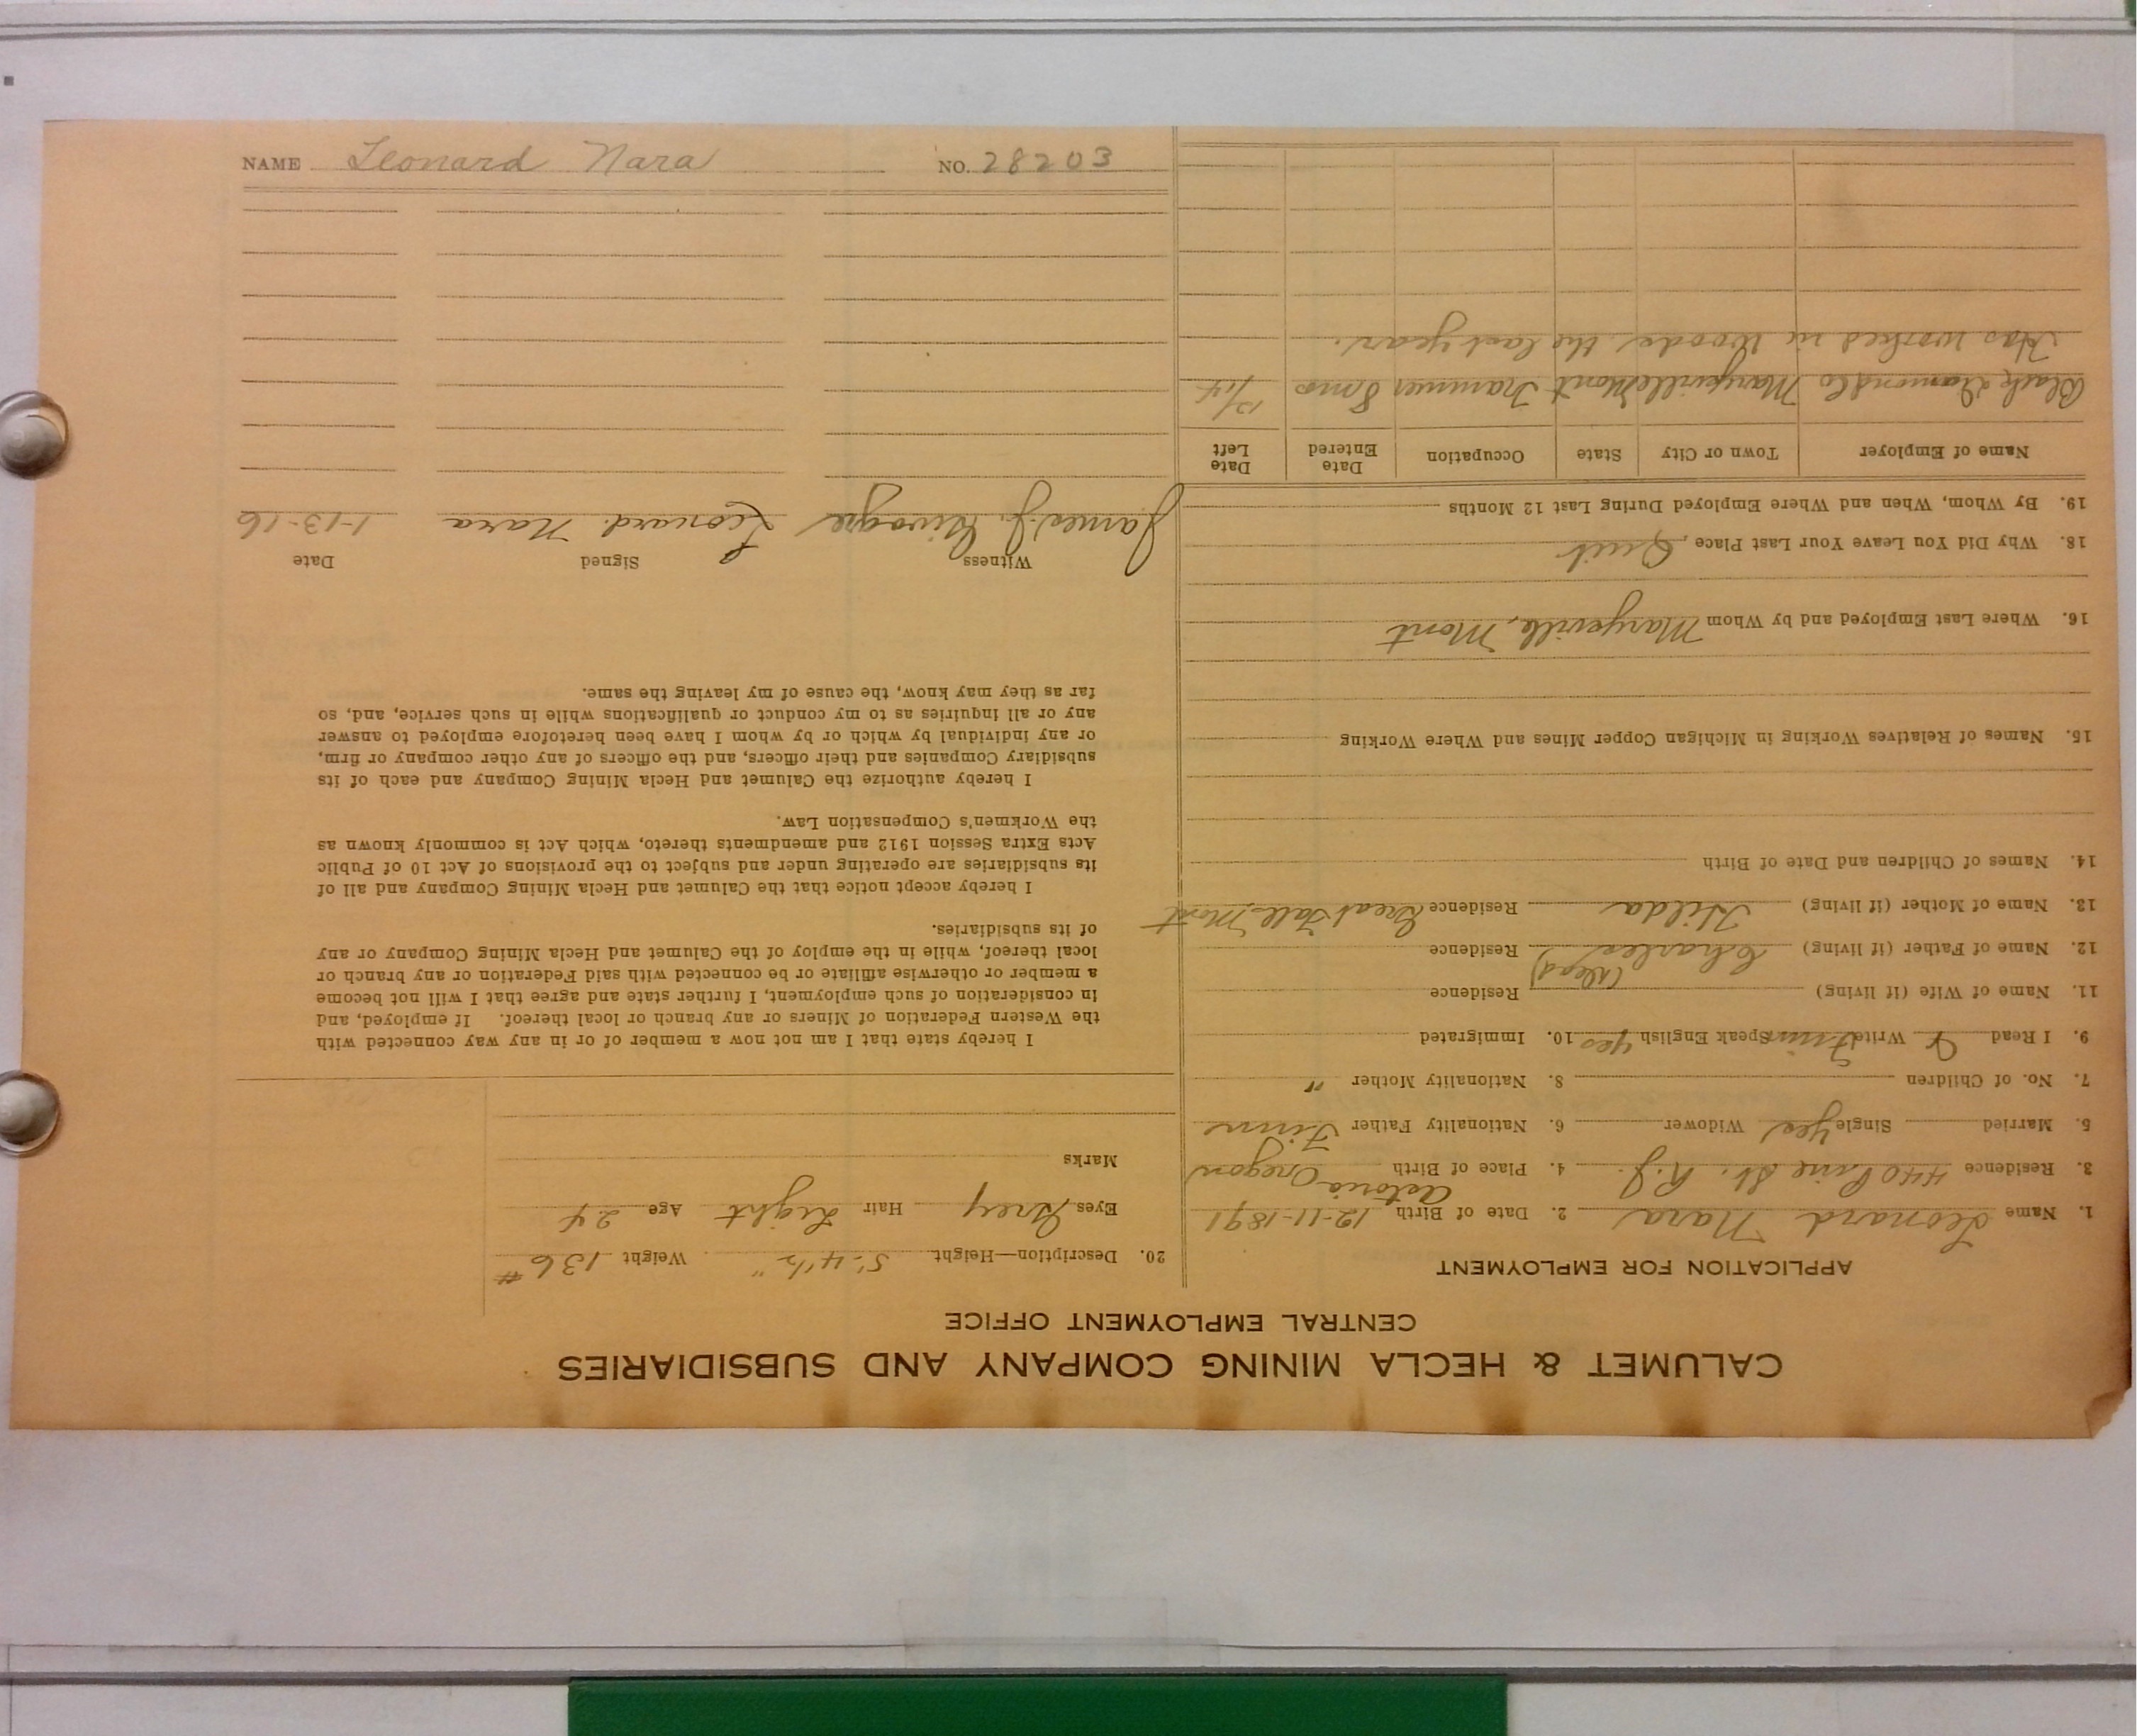 NAME Leonard Nara NO. 28203
CALUMET & HECLA MINING COMPANY AND SUBSIDIARIES
CENTRAL EMPLOYMENT OFFICE
APPLICATION FOR EMPLOYMENT
1. Name Leonard Nara 2. Date of Birth 12-11-1891
3. Residence 440 Pine St. R.J. 4. Place of Birth Astoria Oregon
5. Married Single Yes Widower 6. Nationality Father Finn
7. No. of Children 8. Nationality Mother "
9. I Read & Write Finn Speak English Yes 10. Immigrated
11. Name of Wife (if living) Residence
12. Name of Father (if living) Charles (Dead) Residence
13. Name of Mother (if living) Hilda Residence Great Fall Mont
14. Names of Children and Date of Birth
15. Names of Relatives Working in Michigan Copper Mines and Where Working
16. Where Last Employed and by Whom Marysville, Mont
18. Why Did You Leave Your Last Place Quit
19. By Whom, When and Where Employed During Last 12 Months
Name of Employer Town or City State Occupation Date Entered Date Left
Black Diamond Co Marysville Mont Trammer 8 mo 12/14
Has worked in Woods the last year.
20. Description—Height 5' 4 1/2" Weight 136 #
Eyes Grey Hair Light Age 24
Marks
I hereby state that I am not now a member of or in any way connected with
the Western Federation of Miners or any branch or local thereof. If employed, and
in consideration of such employment, I further state and agree that I will not become
a member or otherwise affiliate or be connected with said Federation or any branch or
local thereof, while in the employ of the Calumet and Hecla Mining Company or any
of its subsidiaries.
I hereby accept notice that the Calumet and Hecla Mining Company and all of
its subsidiaries are operating under and subject to the provisions of Act 10 of Public
Acts Extra Session 1912 and amendments thereto, which Act is commonly known as
the Workmen's Compensation Law.
I hereby authorize the Calumet and Hecla Mining Company and each of its
subsidiary Companies and their officers, and the officers of any other company or firm,
or any individual by which or by whom I have been heretofore employed to answer
any or all inquiries as to my conduct or qualifications while in such service, and, so
far as they may know, the cause of my leaving the same.
Witness Signed Date
James J. Leonard Nara 1-13-16